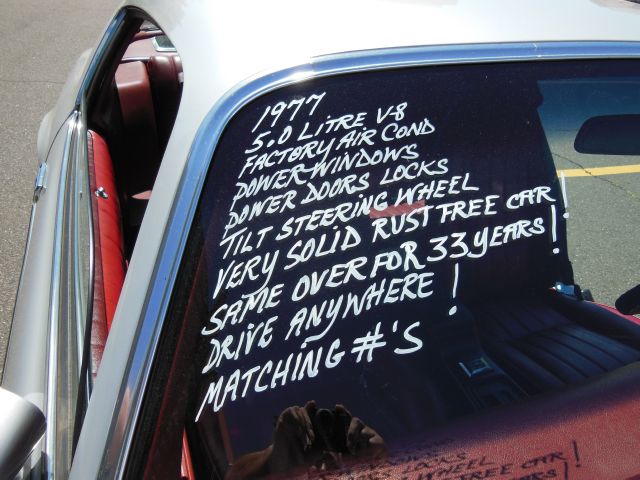 1977
5.0 LITRE V-8
FACTORY AIR COND
POWER-WINDOWS
POWER DOORS LOCKS
TILT STEERING WHEEL
VERY SOLID RUST FREE CAR!
SAME OVER FOR 33 YEARS!
DRIVE ANYWHERE!
MATCHING #'S
LOCKS
WHEEL
FREE CAR!